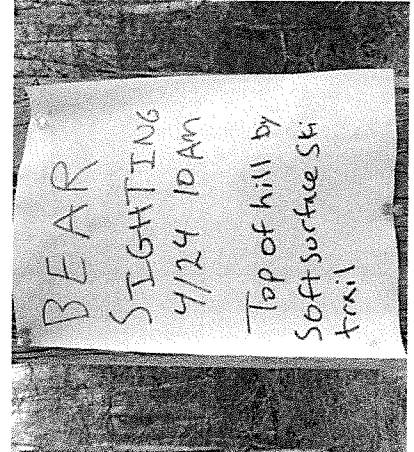 BEAR
SIGHTING
4/24 10 Am
Top of hill by
Soft surface Ski
trail